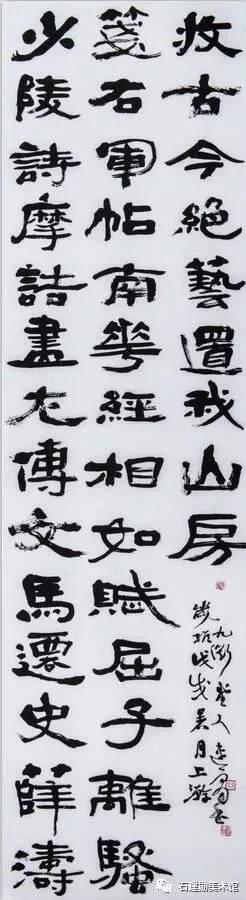 少陵詩摩詰畫左傳文馬遷史薛濤
箋右軍帖南華經相如賦屈子離騷
收古今絕藝置我山房
戊戌 月上
石建勋美术馆